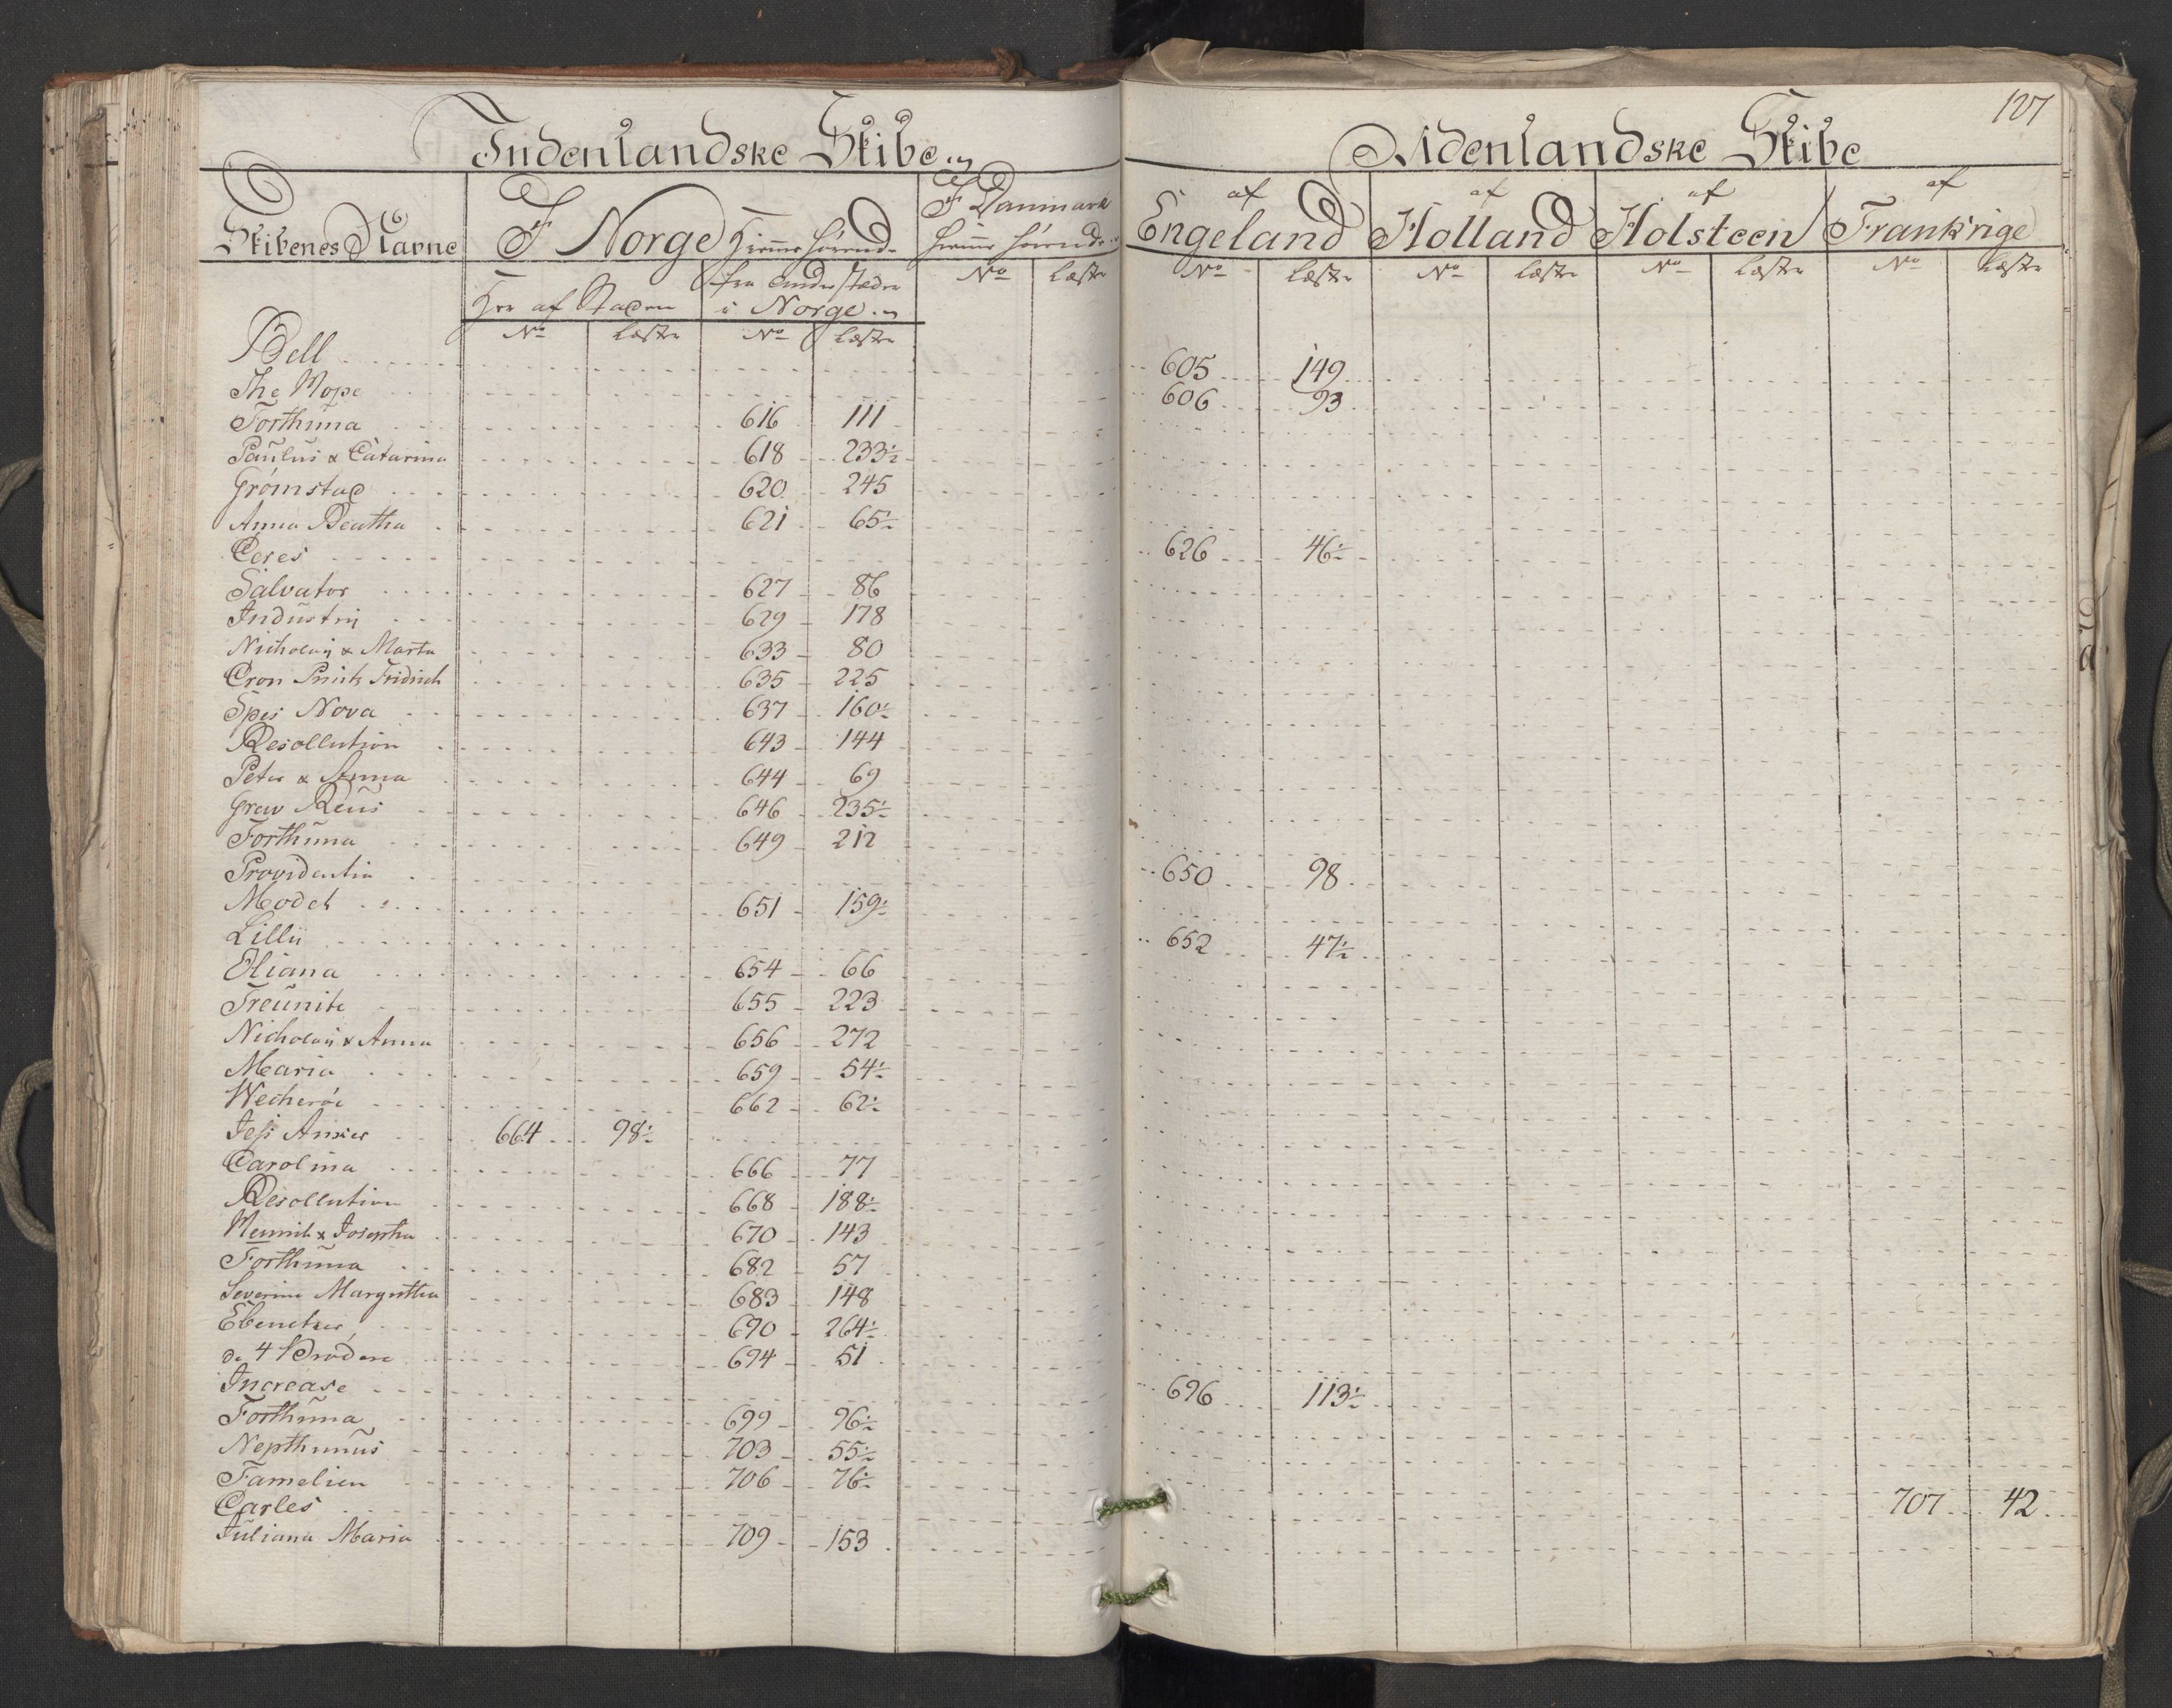 127
Indenlandske Skibe
Udenlandske Skibe
Skibenes Navne
I Norge Hiemme hørend
I Danmark hiemme hørende
af Engeland
af Holland
af Holsteen
af Frankrige
Her af Staden
fra andre stæder i Norge
No Læster No Læster No Læster No Læster No Læster No Læster No Læster
Bell 605 149
The Hope 606 93
Forthuna 616 111
Paulus & Catarina 618 233½
Grømstad 620 245
Anna Beatha 621 65½
Ceres 626 46½
Salvator 627 86
Industrij 629 178
Nicholaij & Marta 633 80
Cron Prints Fridrich 635 225
Spes Nova 637 160½
Resollution 643 144
Peter & Anna 644 69
Grev Reus 646 235½
Forthuna 649 212
Providentia 650 98
Modet 651 159½
Lillii 652 47½
Eliana 654 66
Treunite 655 223
Nicholaij & Anna 656 272
Maria 659 54½
Wecherøe 662 62½
Jess Anker 664 98½
Carolina 666 77
Resollution 668 188½
Henrich & Josepha 670 143
Forthuna 682 57
Severine Margretha 683 148
Ebenetzer 690 264½
de 4 Brødere 694 51
Increase 696 113½
Forthuna 699 96½
Nepthunus 703 55½
Famelien 706 76½
Carles 707 42
Juliana Maria 709 153